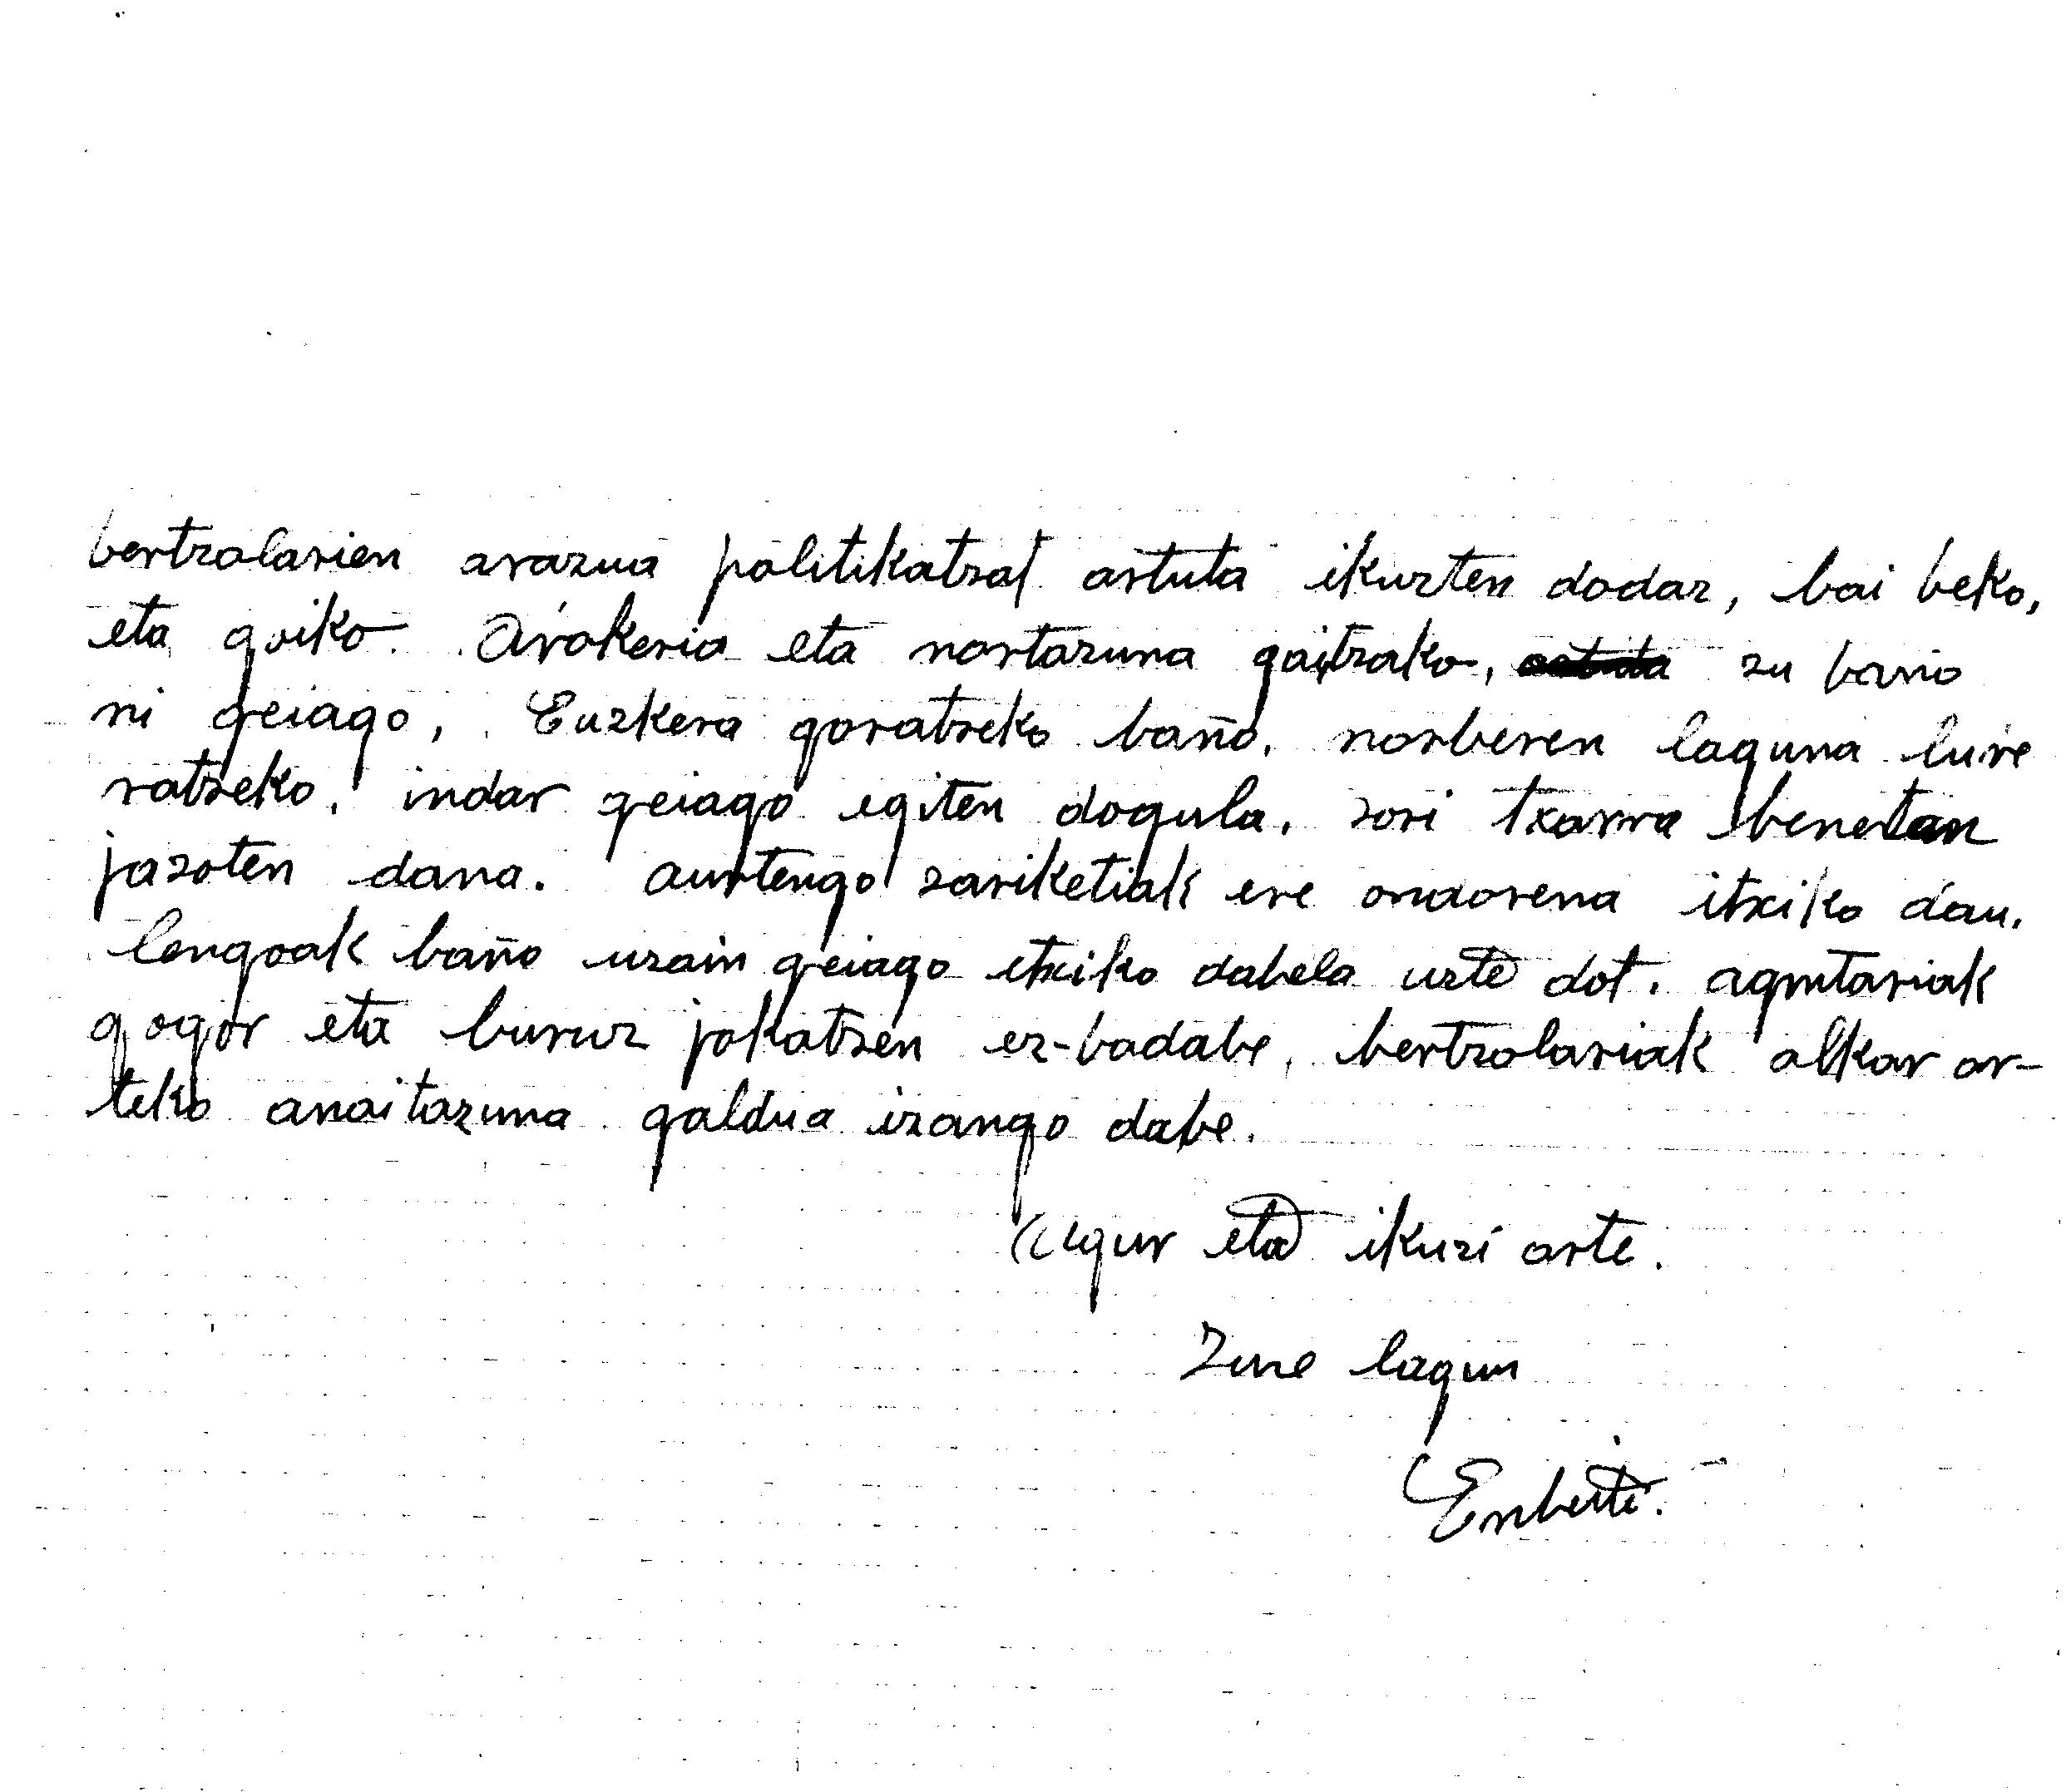 bertzolarien arazua politikatzat artuta ikuzten dodaz, bai beko,
eta goiko. Arrokeria eta nortazuna gaitzako, zu baño
ni geiago, Euzkera goratzeko baño, norberen laguna lurre
ratzeko, indar geiago egiten dogula, zori txarra benetan
jazoten dana. Aurtengo zariketiak ere ondorena itxiko dau.
lengoak baño uzain geiago itxiko dabela uzte dot. agintariak
gogor eta buruz jokatzen ez-badabe, bertzolariak alkar ar-
teko anaitazuna galdua izango dabe.
Agur eta ikuzi arte.
Zure lagun
Enbeita.